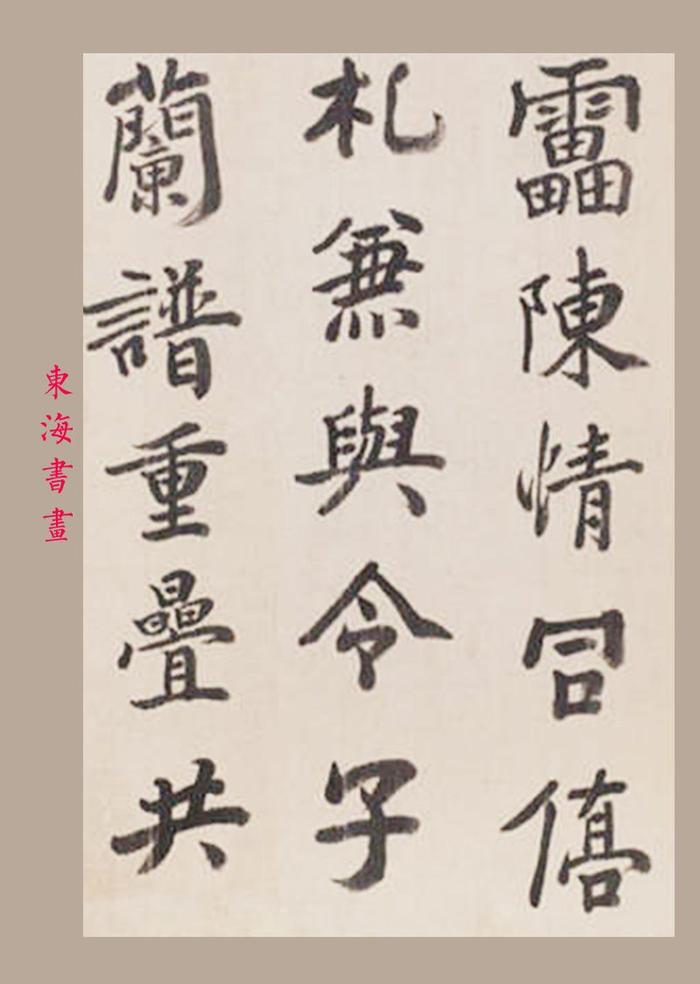 靁陳情同僑
札兼與令子
蘭譜重疊共
東海書畫